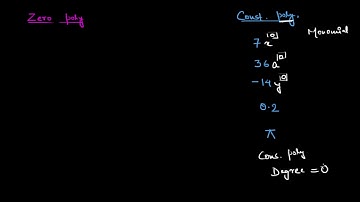 Zero poly
Const. poly.
7x⁰
Monomial
36a⁰
-14y⁰
0.2
π
Cons. poly
Degree = 0